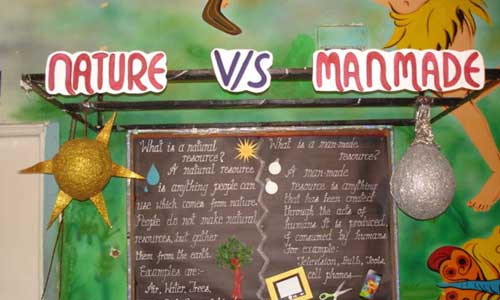 NATURE V/S MANMADE
What is a natural
resource?
A natural resource
is anything people can
use which comes from nature.
People do not make natural
resources, but gather
them from the earth.
Examples are:-
Air, Water, Trees,
What is a man-made
resource?
A man-made
resource is anything
that has been created
through the aids of
humans. It is produced,
& consumed by humans,
for example:
Television, Bulb, Tools,
cell phones